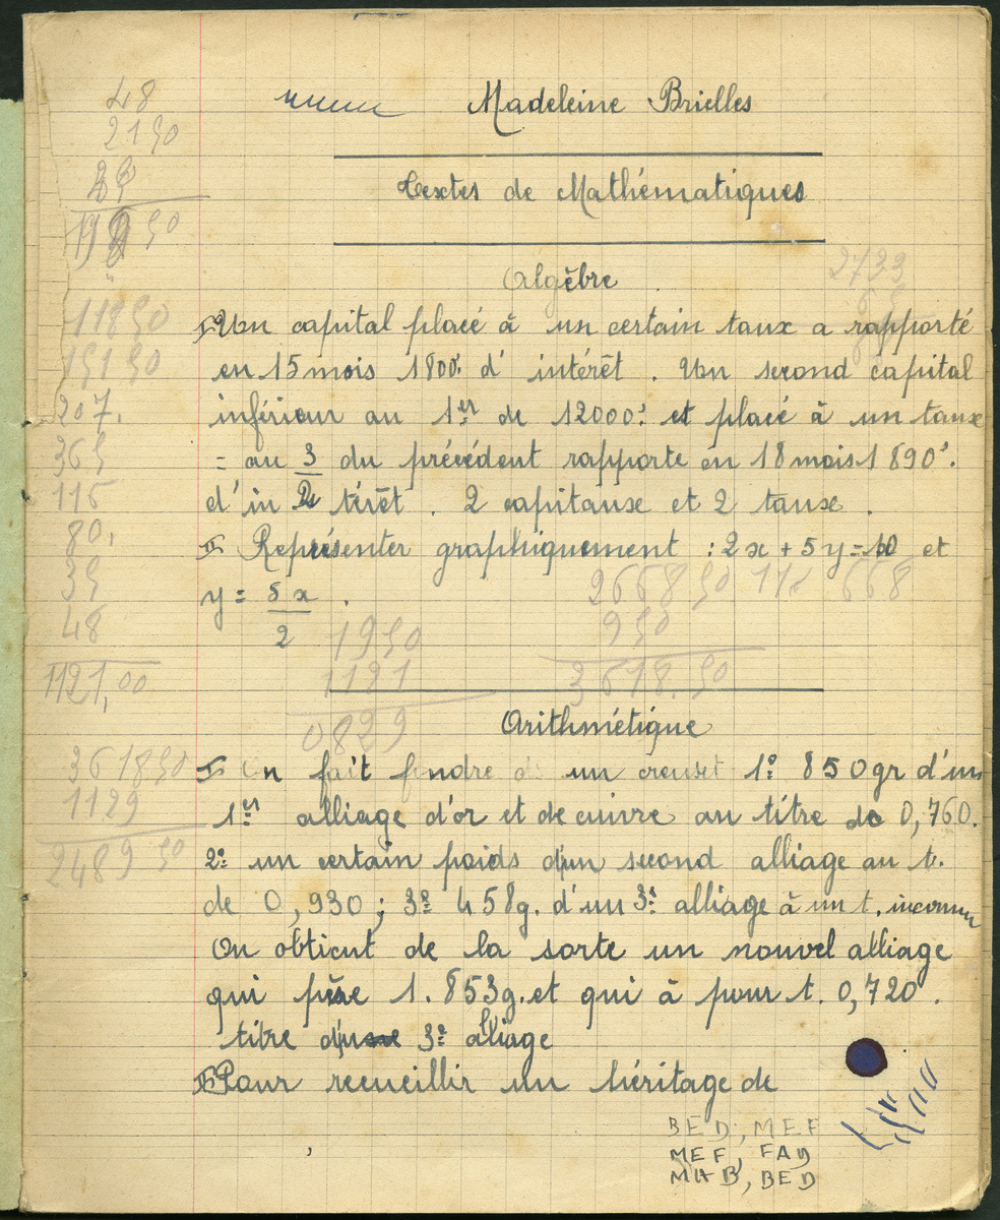 Madeleine Brielles
Textes de Mathématiques
Algèbre
I Un capital placé à un certain taux a rapporté
en 15 mois 1800f d'intérêt. Un second capital
inférieur au 1er de 12000f et placé à un taux
= au 3/2 du précédent rapporte en 18 mois 1890f.
d'intérêt. 2 capitaux et 2 taux.
II Représenter graphiquement : 2x + 5y = 10 et
y = 5x/2.
Arithmétique
I On fait fondre d un creuset 1º 850gr d'un
1er alliage d'or et de cuivre au titre de 0,760.
2º un certain poids d'un second alliage au t.
de 0,930 ; 3º 458g. d'un 3e alliage à un t. inconnu
On obtient de la sorte un nouvel alliage
qui pèse 1.853g. et qui à pour t. 0,720.
titre du 3e alliage
II Pour recueillir un héritage de
BED, MEF
MEF, FAD
MAB, BED
48
2150
11850
15150
207,
365
115
80,
35
48
1121,00
361850
1129
2489 50
2733
2668 50
668
950
3618.50
1950
1121
0829